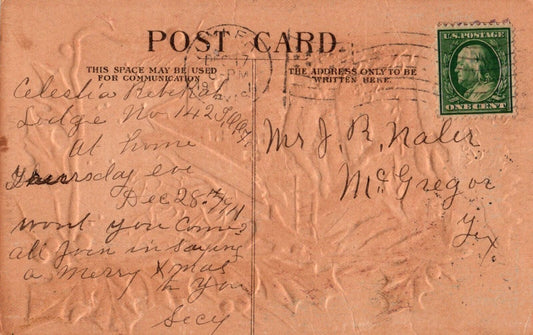 POST CARD.
THIS SPACE MAY BE USED
FOR COMMUNICATION
THE ADDRESS ONLY TO BE
WRITTEN HERE.
U.S. POSTAGE
ONE CENT
DEC 17
PM
Celestia Rebekah
Lodge No 142
At home
Thursday eve
Dec 28th
Wont you come?
all Join in saying
a Merry Xmas
to You
Secy
Mr J. R. Naler
McGregor
Tex